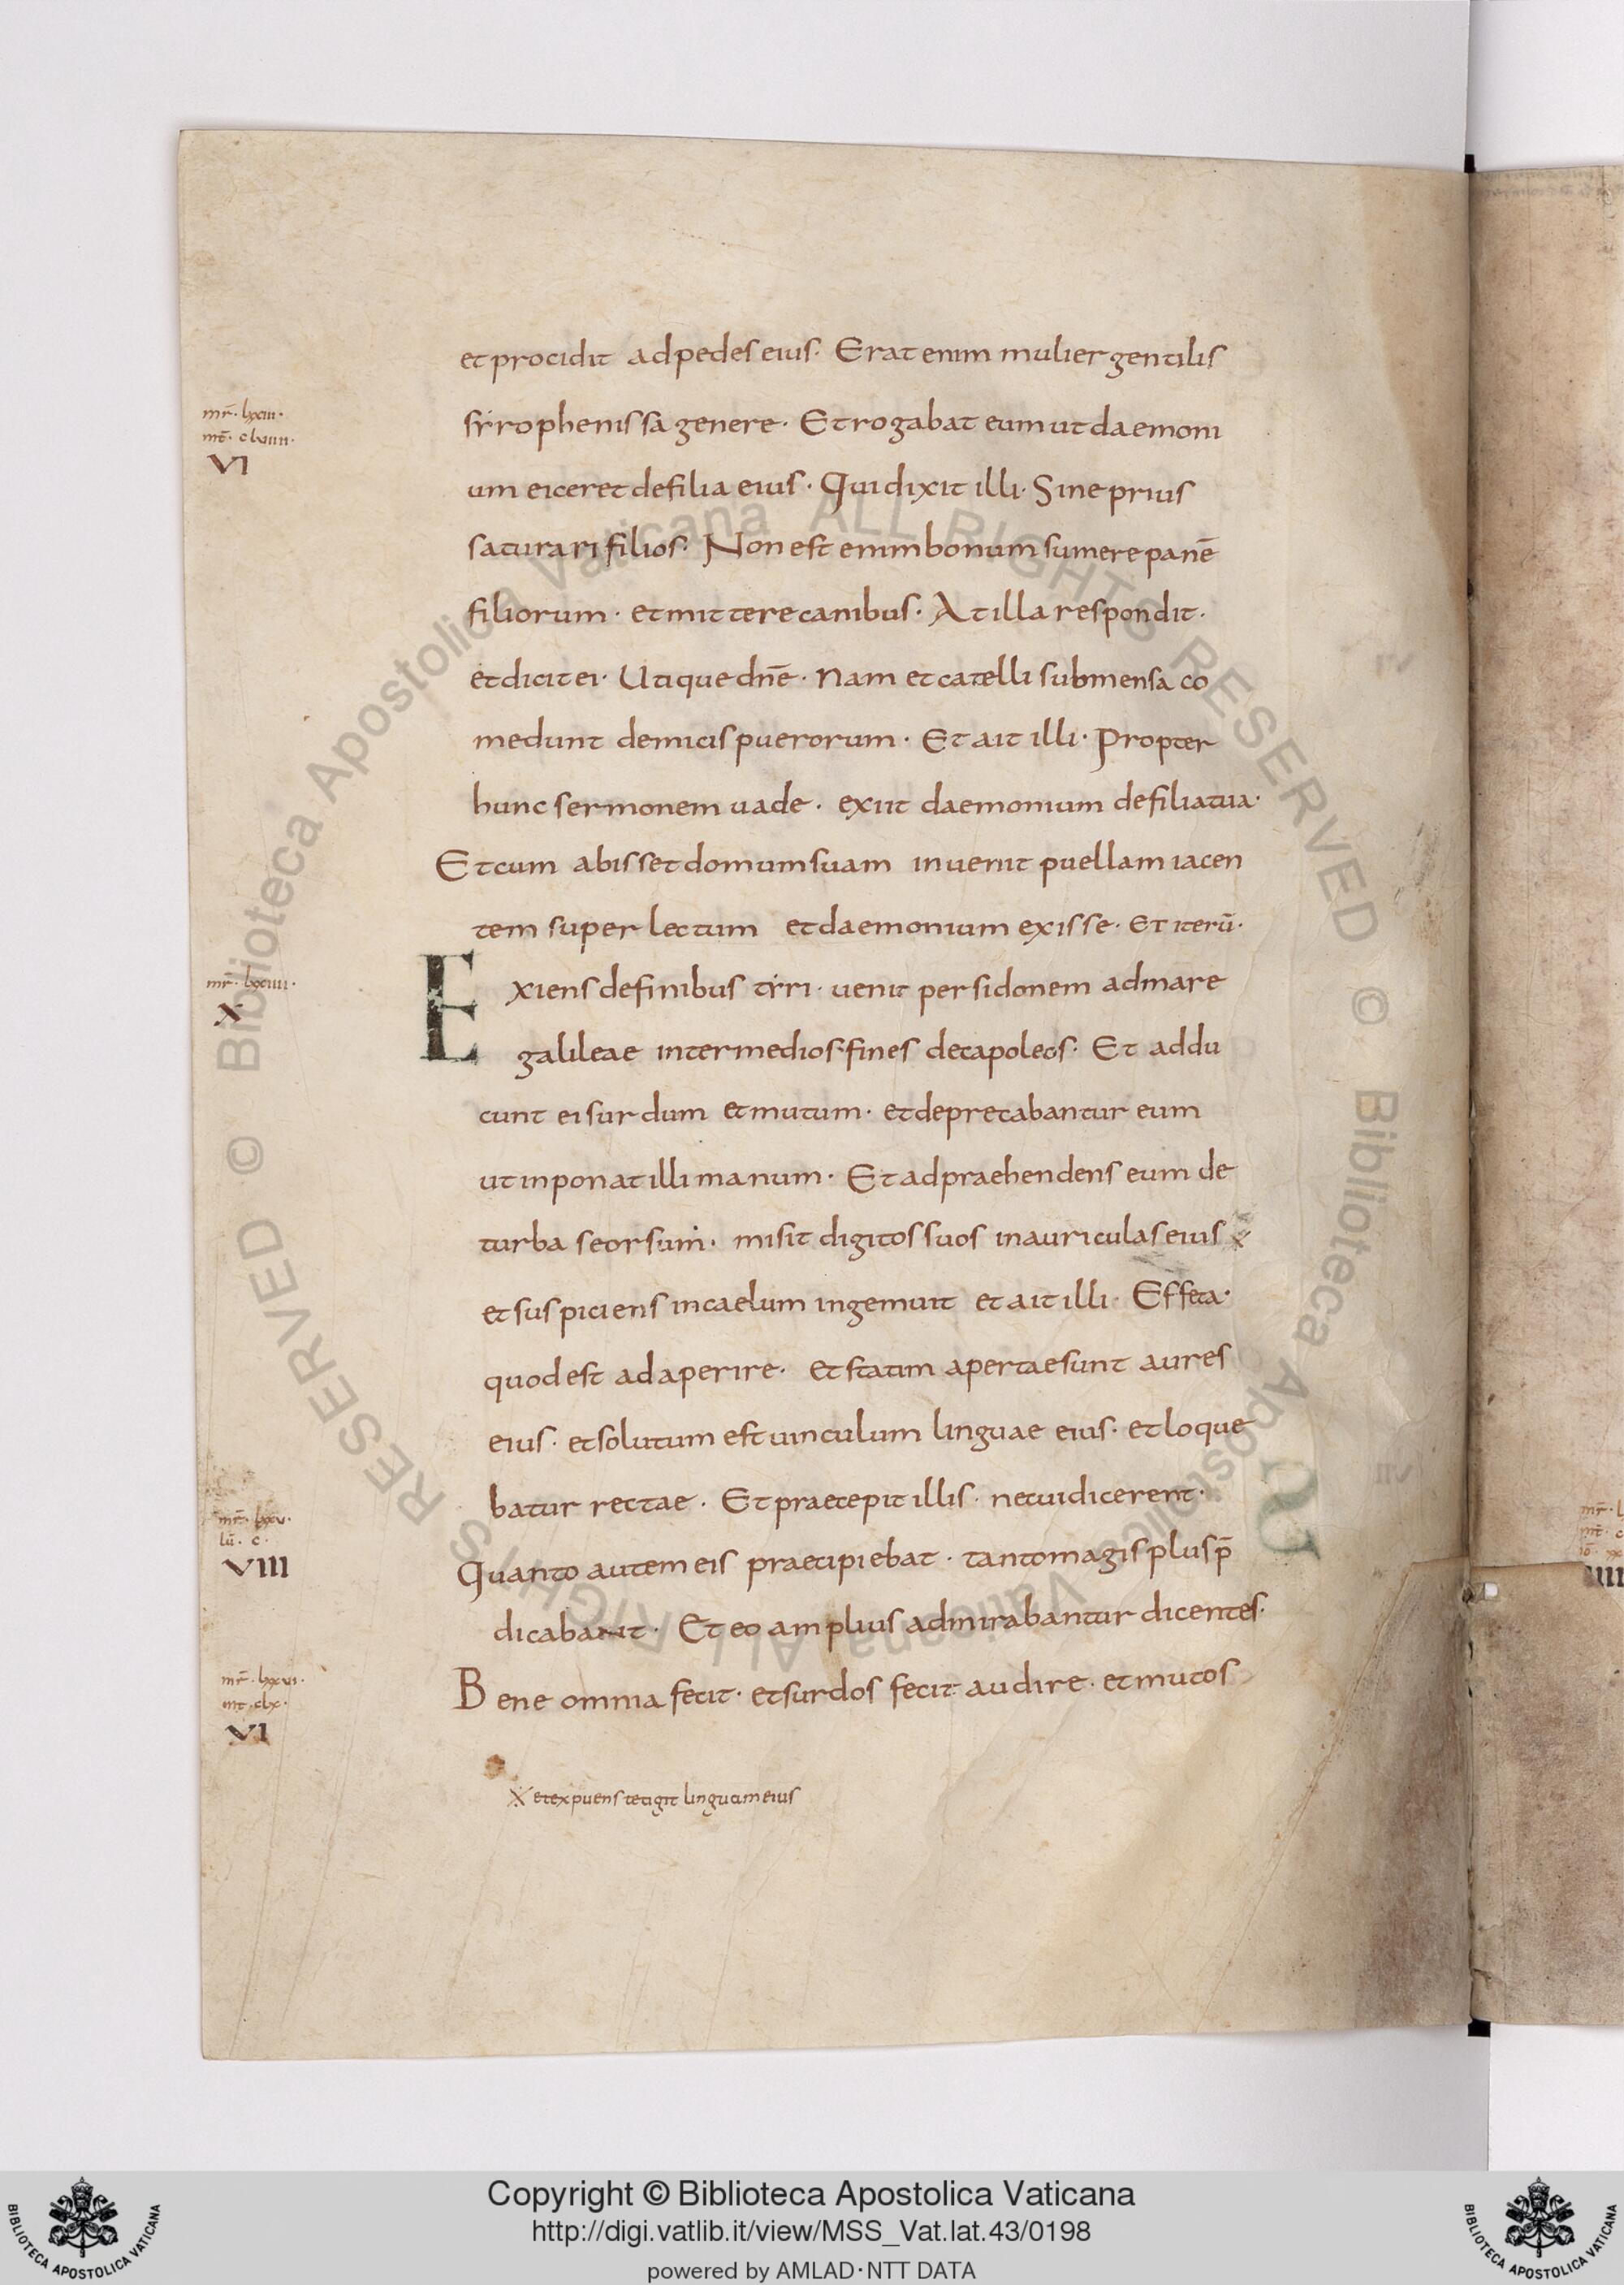 et procidit ad pedes eius· Erat enim mulier gentilis
mr̄· lxxiii·
mt̄· clviiii·
VI
syrophenissa genere· Et rogabat eum ut daemoni
um eiceret de filia eius· Qui dixit illi· Sine prius
saturari filios· Non est enim bonum sumere panē
filiorum· et mittere canibus· At illa respondit·
et dicit ei· Utique dn̄e· Nam et catelli sub mensa co
medunt de micis puerorum· Et ait illi· Propter
hunc sermonem uade· exiit daemonium de filia tua·
Et cum abisset domum suam inuenit puellam iacen
tem super lectum et daemonium exisse· Et iterū·
mr̄· lxxiiii·
X
Exiens de finibus tyri· uenit per sidonem ad mare
galileae inter medios fines decapoleos· Et addu
cunt ei surdum et mutum· et deprecabantur eum
ut inponat illi manum· Et adpraehendens eum de
turba seorsum· misit digitos suos in auriculas eius
et suspiciens in caelum ingemuit et ait illi· Effeta·
quod est adaperire· et statim apertae sunt aures
eius· et solutum est uinculum linguae eius· et loque
batur rectae· Et praecepit illis· ne cui dicerent·
mr̄· lxxv·
lū· c·
VIII
Quanto autem eis praecipiebat· tanto magis plus p̄
dicabant· Et eo amplius admirabantur dicentes·
mr̄· lxxvi·
mt· clx·
VI
Bene omnia fecit· et surdos fecit audire· et mutos
et expuens tetigit linguam eius
Biblioteca Apostolica Vaticana ALL RIGHTS RESERVED ©
Biblioteca Apostolica Vaticana ALL RIGHTS RESERVED ©
Copyright © Biblioteca Apostolica Vaticana
http://digi.vatlib.it/view/MSS_Vat.lat.43/0198
powered by AMLAD·NTT DATA
BIBLIOTECA APOSTOLICA VATICANA
BIBLIOTECA APOSTOLICA VATICANA